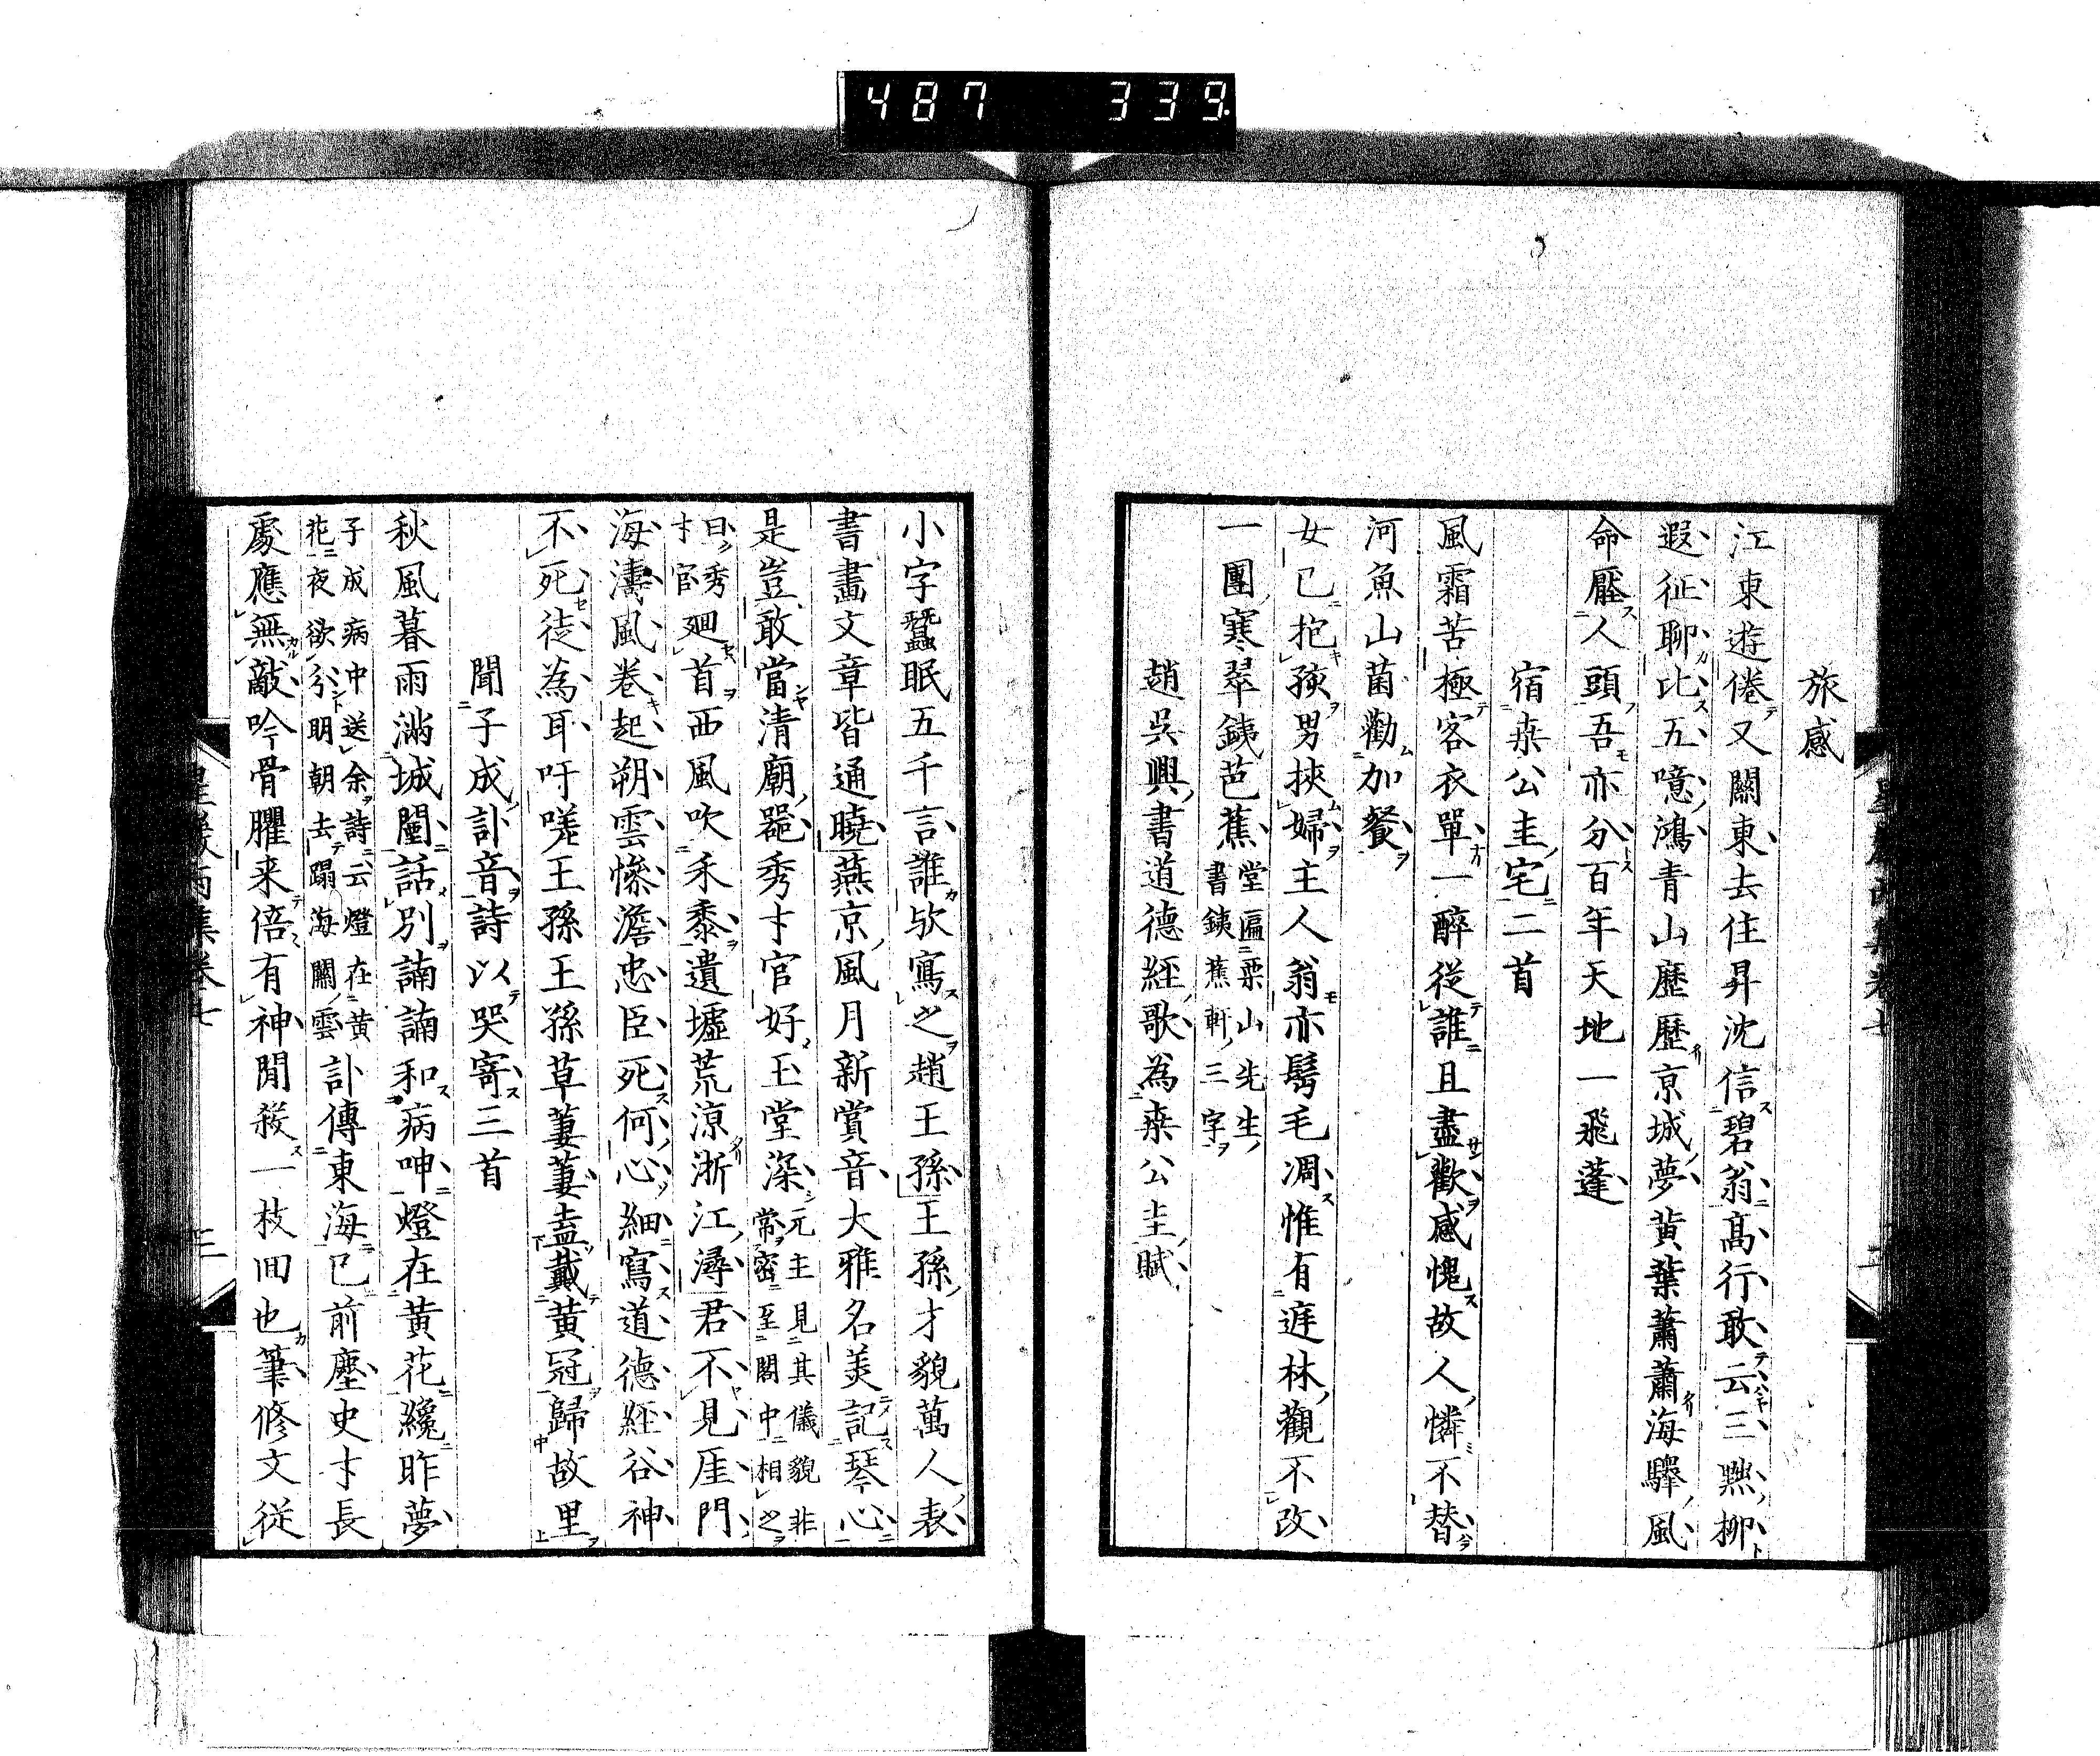 487 339
旅感
江東遊倦又關東去住昇沈信碧翁高行敢云三黜柳
遐征聊比五噫鴻青山歷歷京城夢黃葉蕭蕭海驛風
命壓人頭吾亦分百年天地一飛蓬
宿桒公圭宅二首
風霜苦極客衣單一醉從誰且盡歡感愧故人憐不替
河魚山菌勸加餐
女已抱孩男挾婦主人翁亦鬂毛凋惟有庭林觀不改
一團寒翠銕芭蕉堂匾栗山先生
書銕蕉軒三字
趙吳興書道德經歌為桒公圭賦
小字蠶眠五千言誰歟寫之趙王孫王孫才貌萬人表
書畫文章皆通曉燕京風月新賞音大雅名羙記琴心
是豈敢當清廟器秀才官好玉堂深元主見其儀貌非
常密至閣中相之
曰秀
才官廻首西風吹禾黍遺墟荒涼浙江潯君不見厓門
海濤風卷起朔雲慘澹忠臣死何心細寫道德經谷神
不死徒為耳吁嗟王孫王孫草萋萋盍戴黃冠歸故里
聞子成訃音詩以哭寄三首
秋風暮雨滿城闉話別諵諵和病呻燈在黃花纔昨夢
子成病中送余詩云燈在黃
花夜欲分明朝去蹋海關雲訃傳東海已前塵史才長
處應無敵吟骨臞来倍有神閒殺一枝囬也筆修文從
星巖西集卷七
三